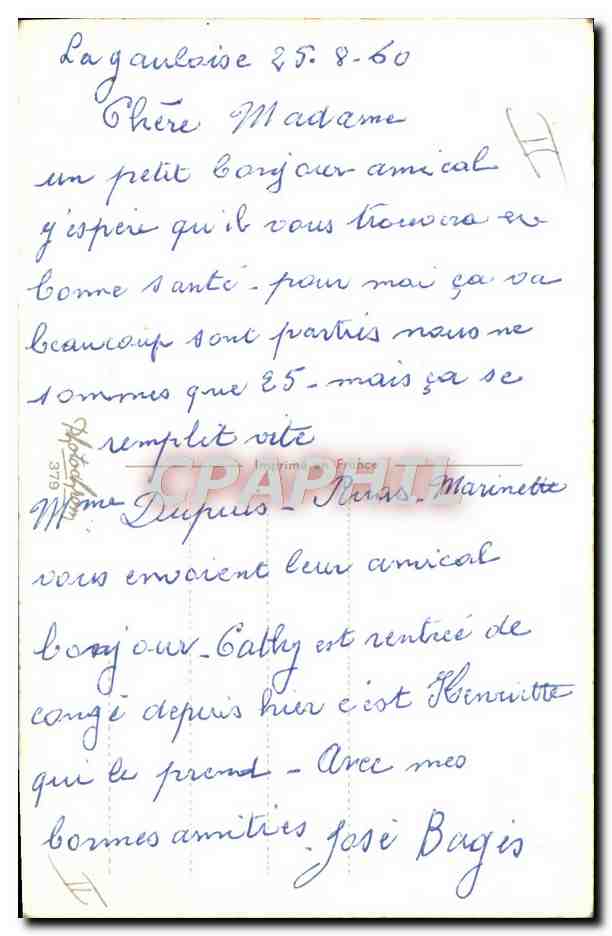 La gauloise 25-8-60
Chère Madame
II
un petit bonjour amical
j'espère qu'il vous trouvera en
bonne santé - pour moi ça va
beaucoup sont partis nous ne
sommes que 25 - mais ça se
remplit vite
Photochrom
379
Imprimé en France
CPAPHIL
Mme Dupuis - Ruas - Marinette
vous envoient leur amical
bonjour - Cathy est rentrée de
congé depuis hier c'est Henriette
qui le prend - Avec mes
bonnes amitiés. José Bagès
II